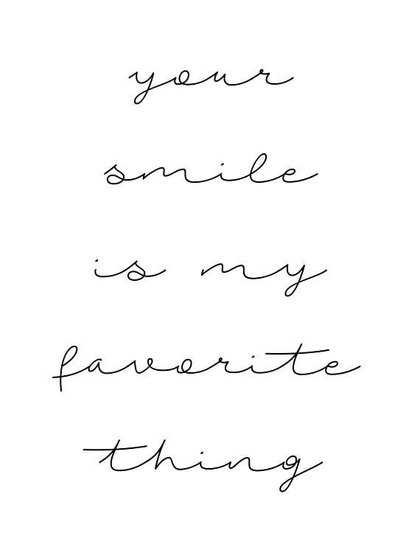 your
smile
is my
favorite
thing